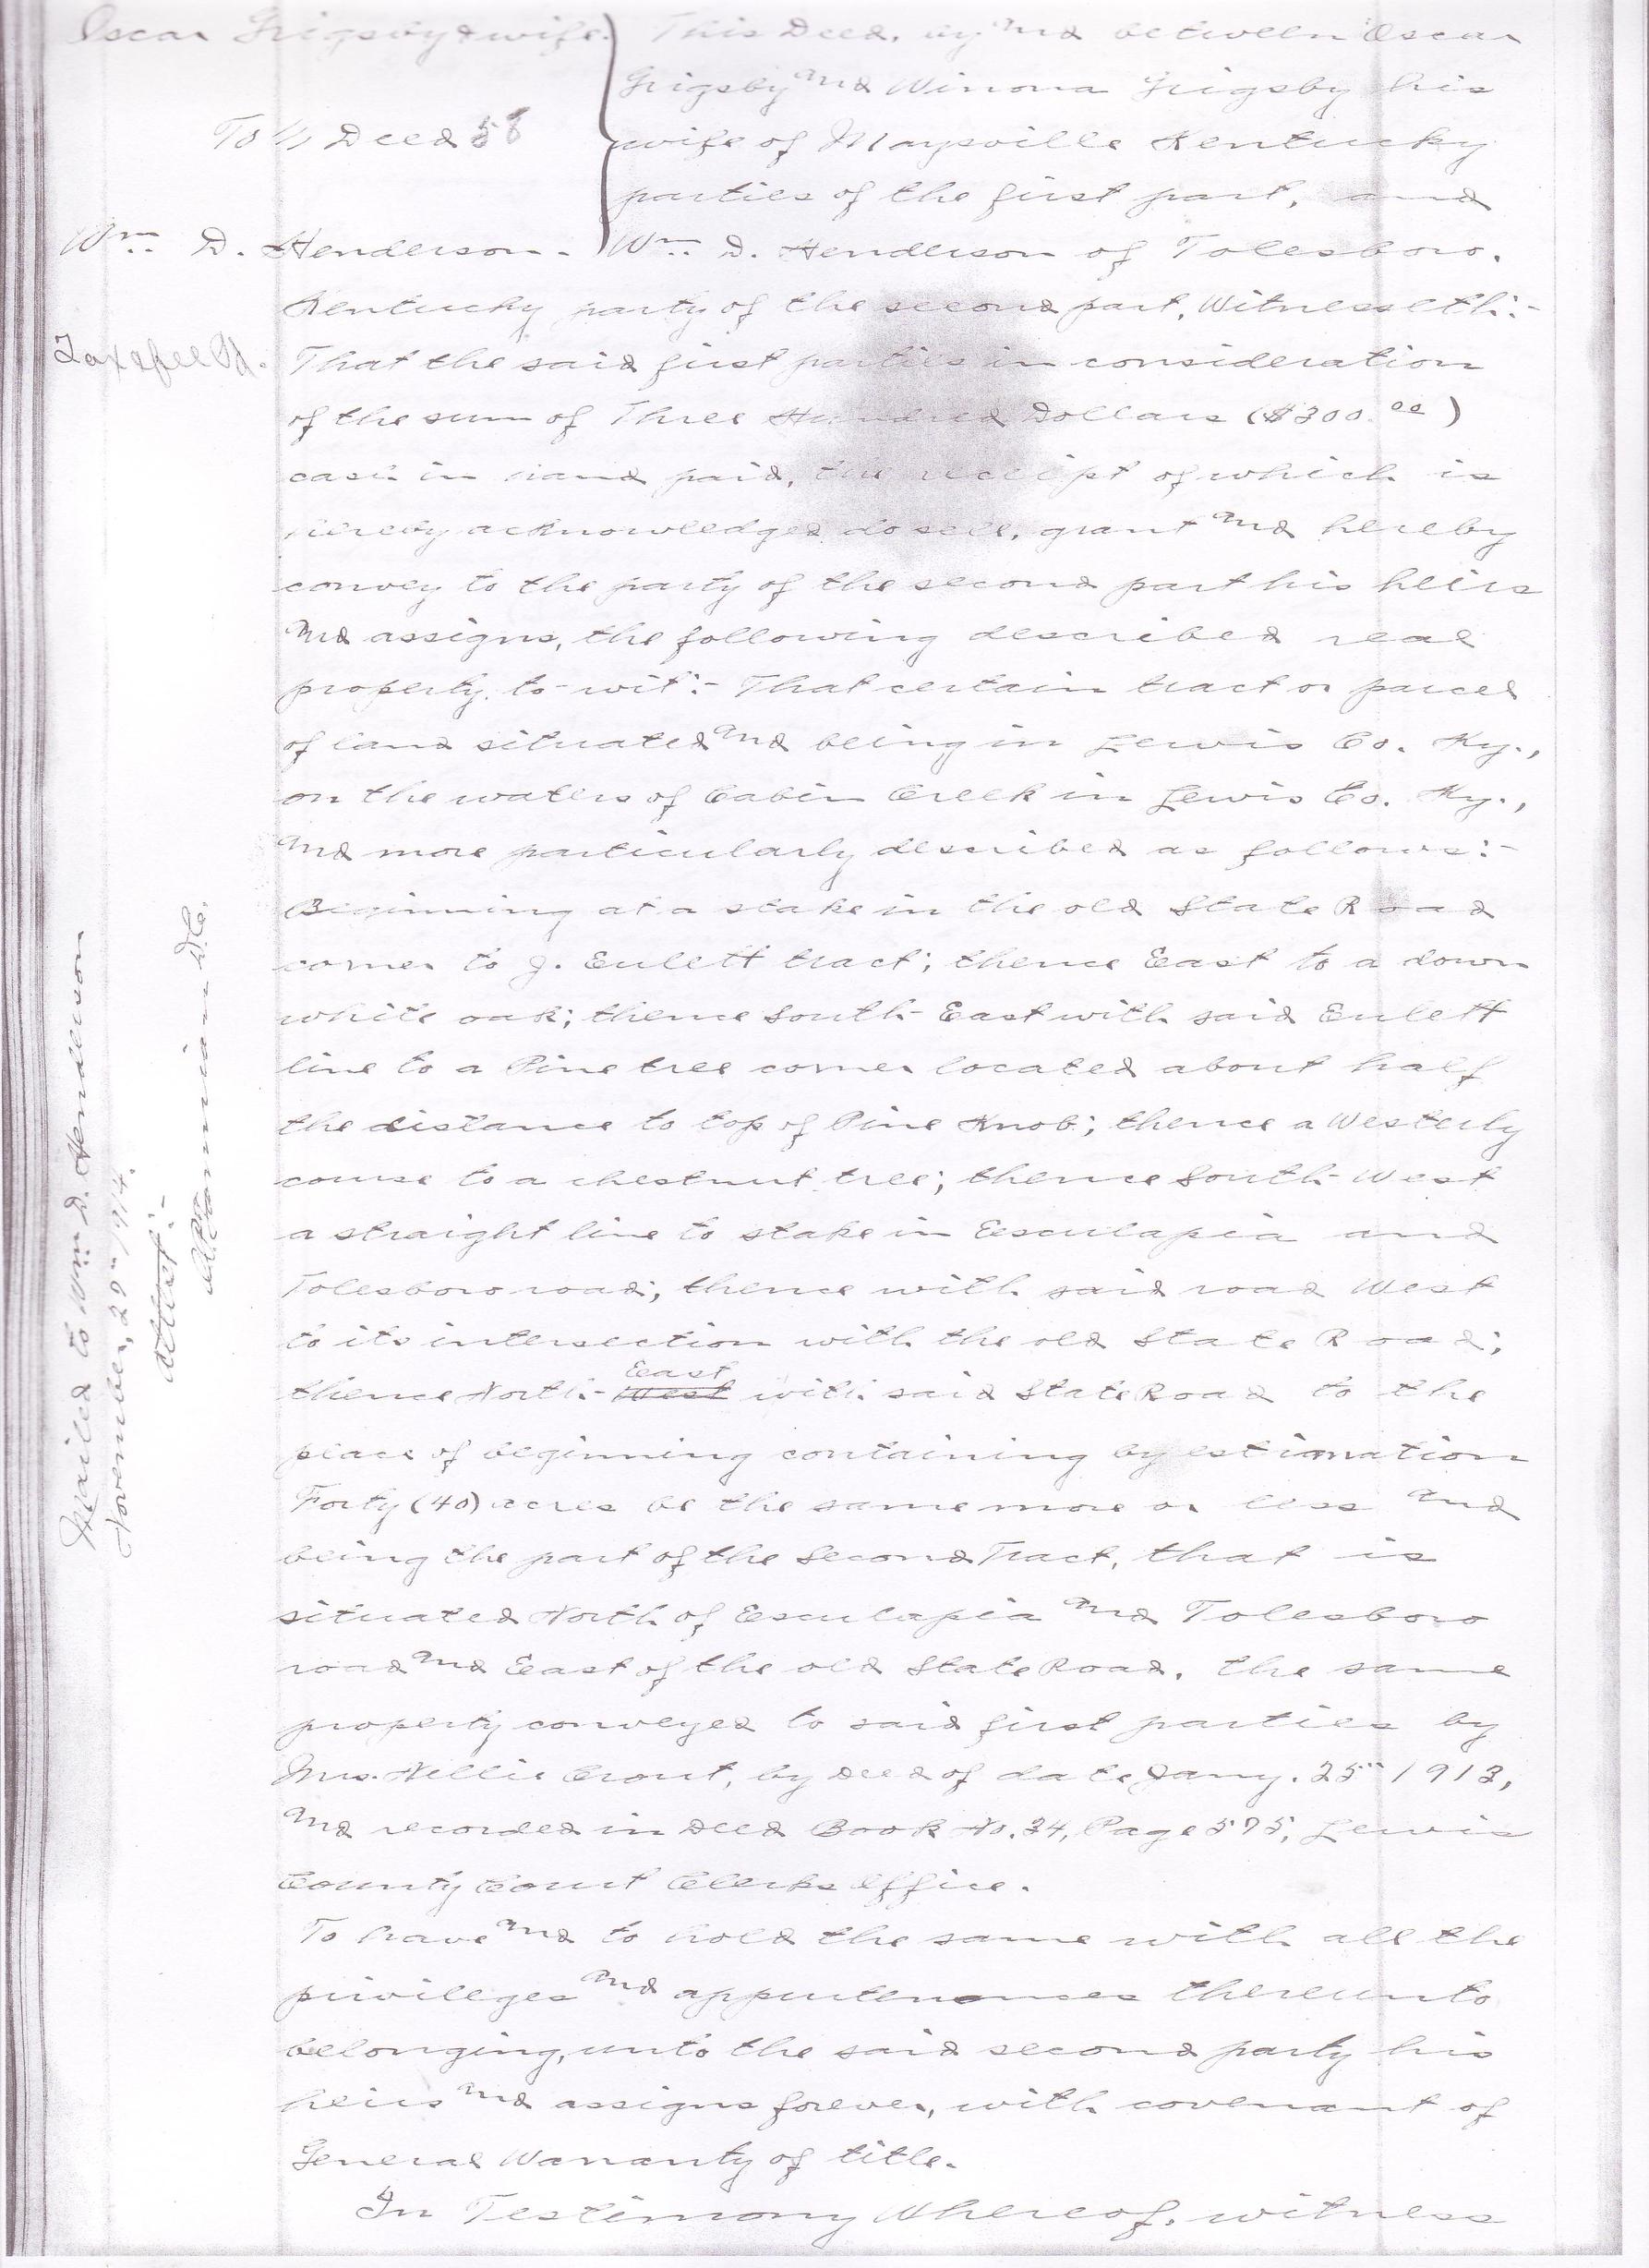 Oscar Grigsby & wife.
To // Deed 58
Wm. D. Henderson.
This Deed, by and between Oscar
Grigsby and Winona Grigsby his
wife of Maysville Kentucky
parties of the first part, and
Wm. D. Henderson of Tolesboro.
Kentucky party of the second part, Witnesseth:-
That the said first parties in consideration
of the sum of Three Hundred Dollars ($300.00)
cash in hand paid, the receipt of which is
hereby acknowledged do sell, grant and hereby
convey to the party of the second part his heirs
and assigns, the following described real
property, to-wit:- That certain tract or parcel
of land situated and being in Lewis Co. Ky.,
on the waters of Cabin Creek in Lewis Co. Ky.,
and more particularly described as follows:-
Beginning at a stake in the old State Road
corner to J. Eulett tract; thence East to a down
white oak; thence South-East with said Eulett
line to a Pine tree corner located about half
the distance to top of Pine Knob; thence a Westerly
course to a chestnut tree; thence South-West
a straight line to stake in Esculapia and
Tolesboro road; thence with said road West
to its intersection with the old State Road;
East
thence North-West with said State Road to the
place of beginning containing by estimation
Forty (40) acres be the same more or less and
being the part of the Second Tract, that is
situated North of Esculapia and Tolesboro
road and East of the old State Road, the same
property conveyed to said first parties by
Mrs. Nellie Crout, by deed of date Jany. 25" 1913,
and recorded in Deed Book No. 34, Page 575, Lewis
County Court Clerks Office.
To have and to hold the same with all the
privileges and appurtenances thereunto
belonging, unto the said second party his
heirs and assigns forever, with covenant of
General Warranty of title.
In Testimony Whereof, witness
Mailed to Wm. D. Henderson
November, 20" 1914.
Attest:-
D.C.